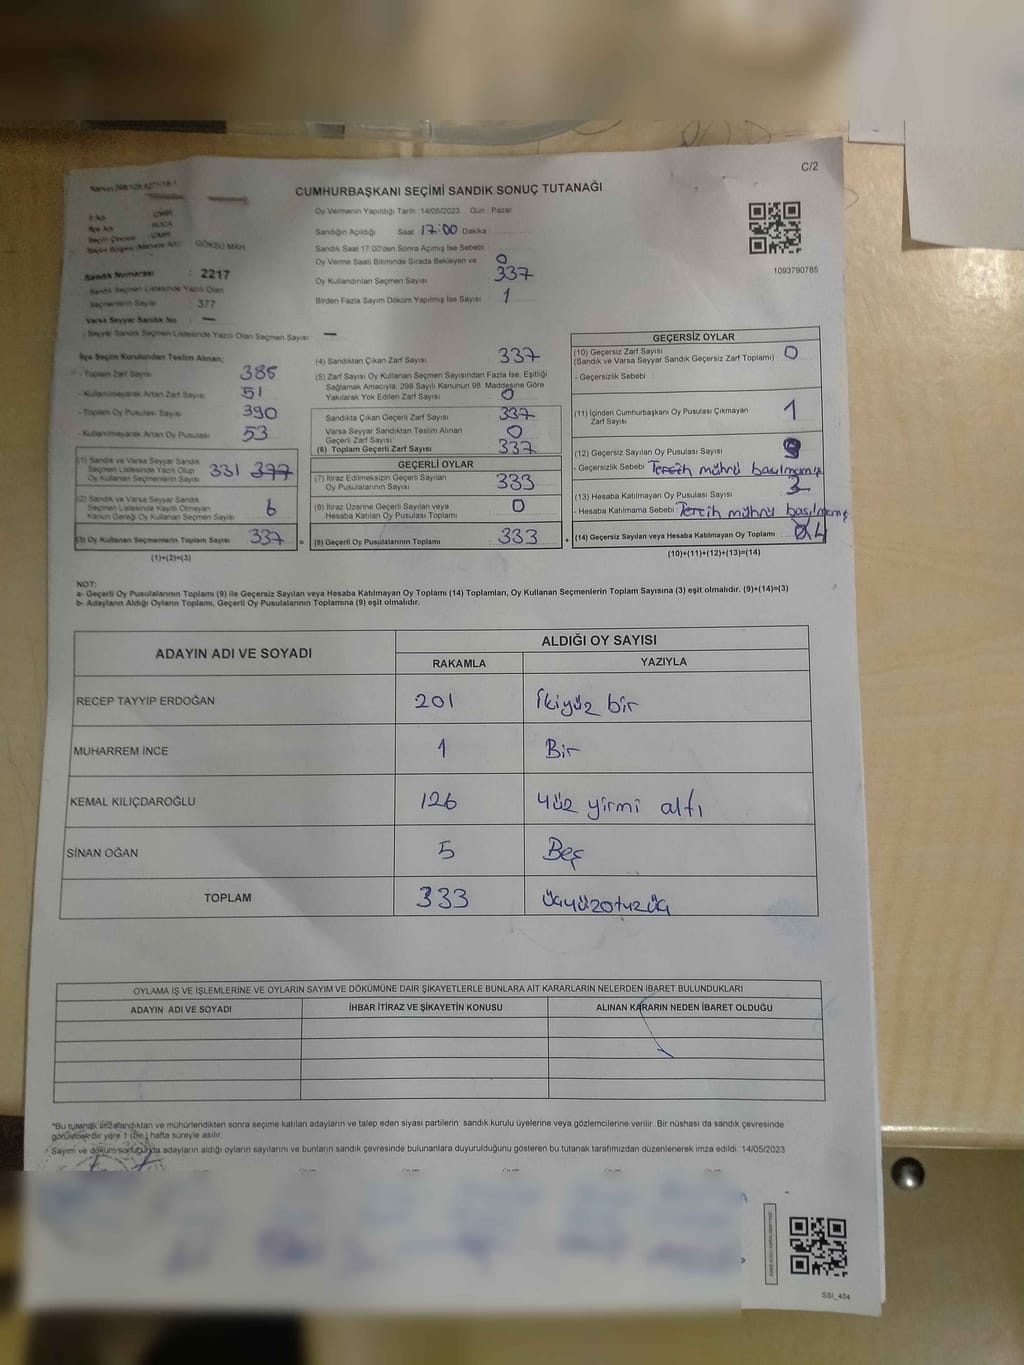 C/2
CUMHURBAŞKANI SEÇİMİ SANDIK SONUÇ TUTANAĞI
Oy Vermenin Yapıldığı Tarih 14/05/2023 Gün Pazar
İli Adı İZMİR
İlçe Adı BUCA
Seçim Çevresi İZMİR
GÖKSU MAH
Sandık Numarası : 2217
Sandık Seçmen Listesinde Yazılı Olan
Seçmenlerin Sayısı : 377
Varsa Seyyar Sandık No : —
Seyyar Sandık Seçmen Listesinde Yazılı Olan Seçmen Sayısı: —
Sandığın Açıldığı Saat 17:00 Dakika
Sandık Saat 17:00'den Sonra Açımış İse Sebebi
Oy Verme Saati Bitiminde Sırada Bekleyen ve 0
Oy Kullandırılan Seçmen Sayısı 337
Birden Fazla Sayım Döküm Yapılmış İse Sayısı 1
1093790785
İlçe Seçim Kurulundan Teslim Alınan;
- Toplam Zarf Sayısı 388
- Kullanılmayarak Artan Zarf Sayısı 51
- Toplam Oy Pusulası Sayısı 390
- Kullanılmayarak Artan Oy Pusulası 53
(1) Sandık ve Varsa Seyyar Sandık
Seçmen Listesinde Yazılı Olup
Oy Kullanan Seçmenlerin Sayısı 331 377
(2) Sandık ve Varsa Seyyar Sandık
Seçmen Listesinde Kayıtlı Olmayan
Kanun Gereği Oy Kullanan Seçmen Sayısı 6
(3) Oy Kullanan Seçmenlerin Toplam Sayısı 337
(1)+(2)=(3)
(4) Sandıktan Çıkan Zarf Sayısı 337
(5) Zarf Sayısı Oy Kullanan Seçmen Sayısından Fazla İse, Eşitliği
Sağlamak Amacıyla, 298 Sayılı Kanunun 98. Maddesine Göre
Yakılarak Yok Edilen Zarf Sayısı 0
Sandıkta Çıkan Geçerli Zarf Sayısı 337
Varsa Seyyar Sandıktan Teslim Alınan
Geçerli Zarf Sayısı 0
(6) Toplam Geçerli Zarf Sayısı 337
GEÇERLİ OYLAR
(7) İtiraz Edilmeksizin Geçerli Sayılan
Oy Pusulalarının Sayısı 333
(8) İtiraz Üzerine Geçerli Sayılan veya
Hesaba Katılan Oy Pusulası Toplamı 0
(9) Geçerli Oy Pusulalarının Toplamı 333
GEÇERSİZ OYLAR
(10) Geçersiz Zarf Sayısı 0
(Sandık ve Varsa Seyyar Sandık Geçersiz Zarf Toplamı)
- Geçersizlik Sebebi
(11) İçinden Cumhurbaşkanı Oy Pusulası Çıkmayan
Zarf Sayısı 1
(12) Geçersiz Sayılan Oy Pusulası Sayısı
- Geçersizlik Sebebi Tercih mührü basılmamış
(13) Hesaba Katılmayan Oy Pusulası Sayısı 3
- Hesaba Katılmama Sebebi Tercih mührü basılmamış
(14) Geçersiz Sayılan veya Hesaba Katılmayan Oy Toplamı 4
(10)+(11)+(12)+(13)=(14)
NOT:
a- Geçerli Oy Pusulalarının Toplamı (9) ile Geçersiz Sayılan veya Hesaba Katılmayan Oy Toplamı (14) Toplamları, Oy Kullanan Seçmenlerin Toplam Sayısına (3) eşit olmalıdır. (9)+(14)=(3)
b- Adayların Aldığı Oyların Toplamı, Geçerli Oy Pusulalarının Toplamına (9) eşit olmalıdır.
ADAYIN ADI VE SOYADI ALDIĞI OY SAYISI
RAKAMLA YAZIYLA
RECEP TAYYİP ERDOĞAN 201 İkiyüz bir
MUHARREM İNCE 1 Bir
KEMAL KILIÇDAROĞLU 126 Yüz yirmi altı
SİNAN OĞAN 5 Beş
TOPLAM 333 üçyüzotuzüç
OYLAMA İŞ VE İŞLEMLERİNE VE OYLARIN SAYIM VE DÖKÜMÜNE DAİR ŞİKAYETLERLE BUNLARA AİT KARARLARIN NELERDEN İBARET BULUNDUKLARI
ADAYIN ADI VE SOYADI İHBAR İTİRAZ VE ŞİKAYETİN KONUSU ALINAN KARARIN NEDEN İBARET OLDUĞU
*Bu tutanak imzalandıktan ve mühürlendikten sonra seçime katılan adayların ve talep eden siyasi partilerin sandık kurulu üyelerine veya gözlemcilerine verilir. Bir nüshası da sandık çevresinde
görülebilecek bir yere 1 (bir) hafta süreyle asılır.
Sayım ve döküm sonucunda adayların aldığı oyların sayılarını ve bunların sandık çevresinde bulunanlara duyurulduğunu gösteren bu tutanak tarafımızdan düzenlenerek imza edildi. 14/05/2023